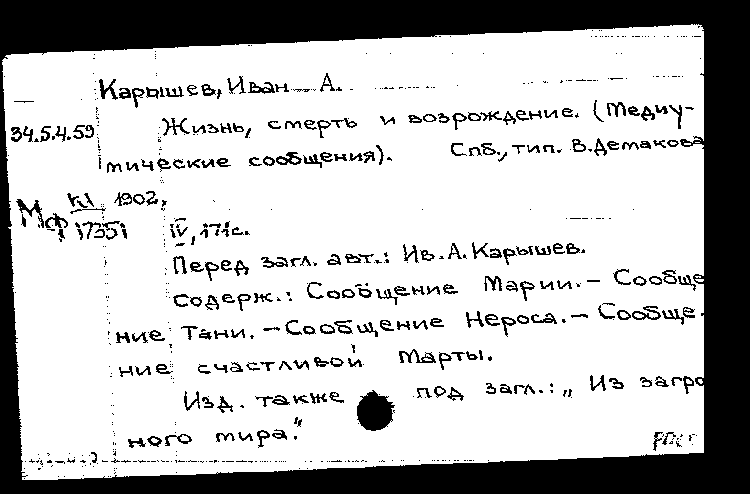 Карышев, Иван А.
34.5.4.59 Жизнь, смерть и возрождение. (Медиу-
мические сообщения). Спб., тип. В. Демакова
1902,
Мф К1 17351 IV, 171с.
Перед загл. авт.: Ив. А. Карышев.
Содерж.: Сообщение Марии. – Сообще
ние Тани. – Сообщение Нероса. – Сообще.
ние счастливой Марты.
Изд. также под загл.: „Из загро
ного мира."